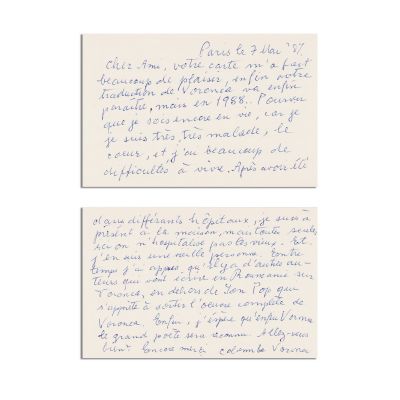 Paris le 7 Mai '87
Cher Ami, votre carte m'a fait
beaucoup de plaisir, enfin votre
traduction de Voronca va enfin
paraître, mais en 1988.. Pourvu
que je sois encore en vie, car je
je suis très, très malade, le
coeur, et j'ai beaucoup de
difficultés à vivre. Après avoir été
dans différents hôpitaux, je suis à
présent à la maison, mais toute seule,
ici on n'hospitalise pas les vieux. Et
j'en suis une vieille personne. Entre
temps j'ai appris qu'il y a d'autres au-
teurs qui vont écrire en Roumanie sur
Voronca, en dehors de Ion Pop qui
s'apprête à sortir l'oeuvre complète de
Voronca. Enfin, j'espère qu'enfin Voronca
le grand poète sera reconnu. Allez-vous
bien? Encore merci Colomba Voronca